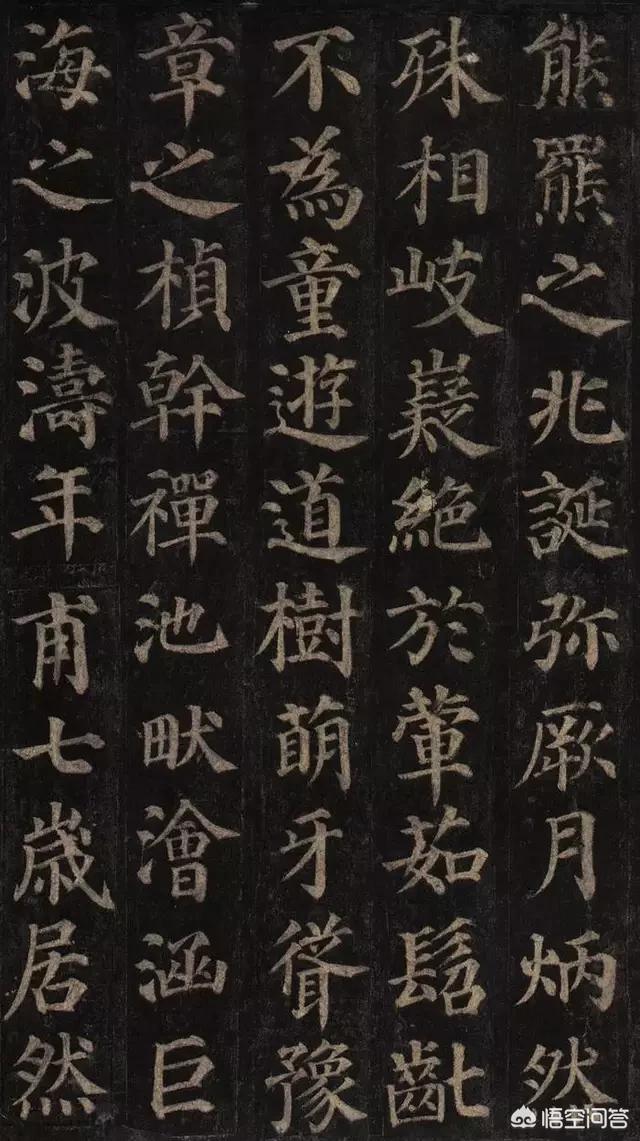 熊羆之兆誕弥厥月炳然
殊相岐嶷絶於葷茹髫齓
不為童遊道樹萌牙聳豫
章之楨幹禪池畎澮涵巨
海之波濤年甫七歳居然
悟空问答